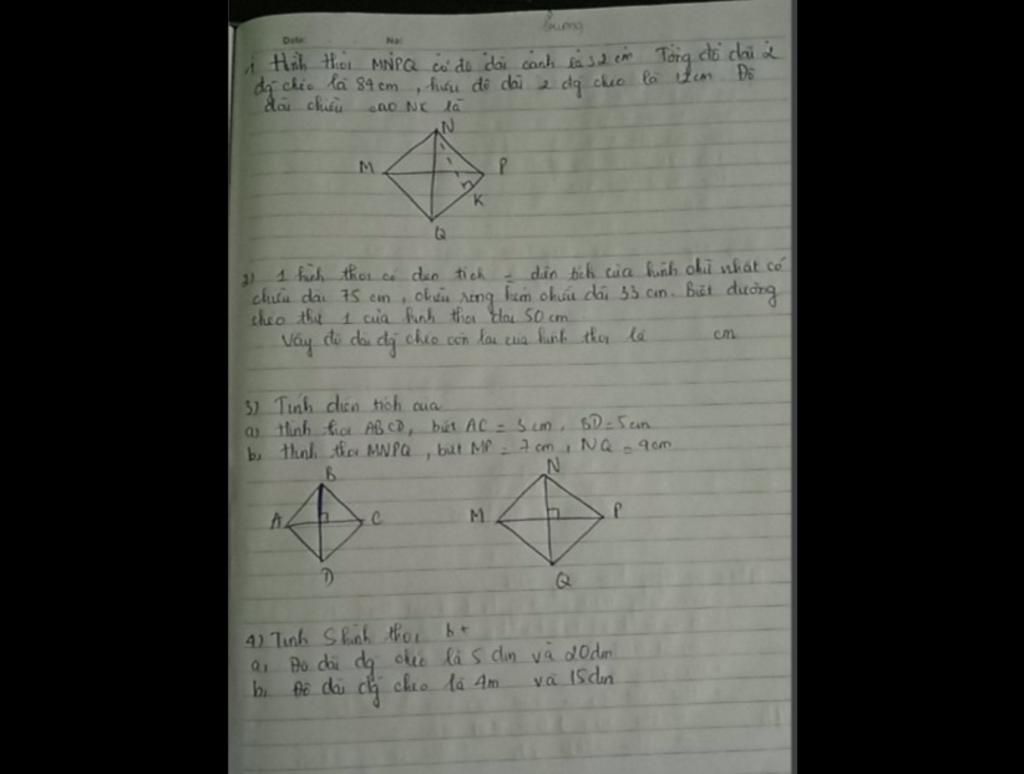 Date: No:
1, Hình thoi MNPQ có độ dài cạnh là 32 cm Tổng độ dài 2
đg chéo là 84 cm, hiệu độ dài 2 đg chéo là 12 cm Độ
dài chiều cao NK là
N
M P
K
Q
2) 1 hình thoi có diện tích = diện tích của hình chữ nhật có
chiều dài 75 cm, chiều rộng kém chiều dài 33 cm. Biết đường
chéo thứ 1 của hình thoi dài 50 cm
Vậy độ dài đg chéo còn lại của hình thoi là cm
3) Tính diện tích của
a) Hình thoi ABCD, biết AC = 3 cm, BD = 5 cm
b, Hình thoi MNPQ, biết MP = 7 cm, NQ = 9 cm
B N
A C M P
D Q
4) Tính S hình thoi bt
a, Độ dài đg chéo là 5 dm và 20 dm
b, Độ dài đg chéo là 4m và 15 dm